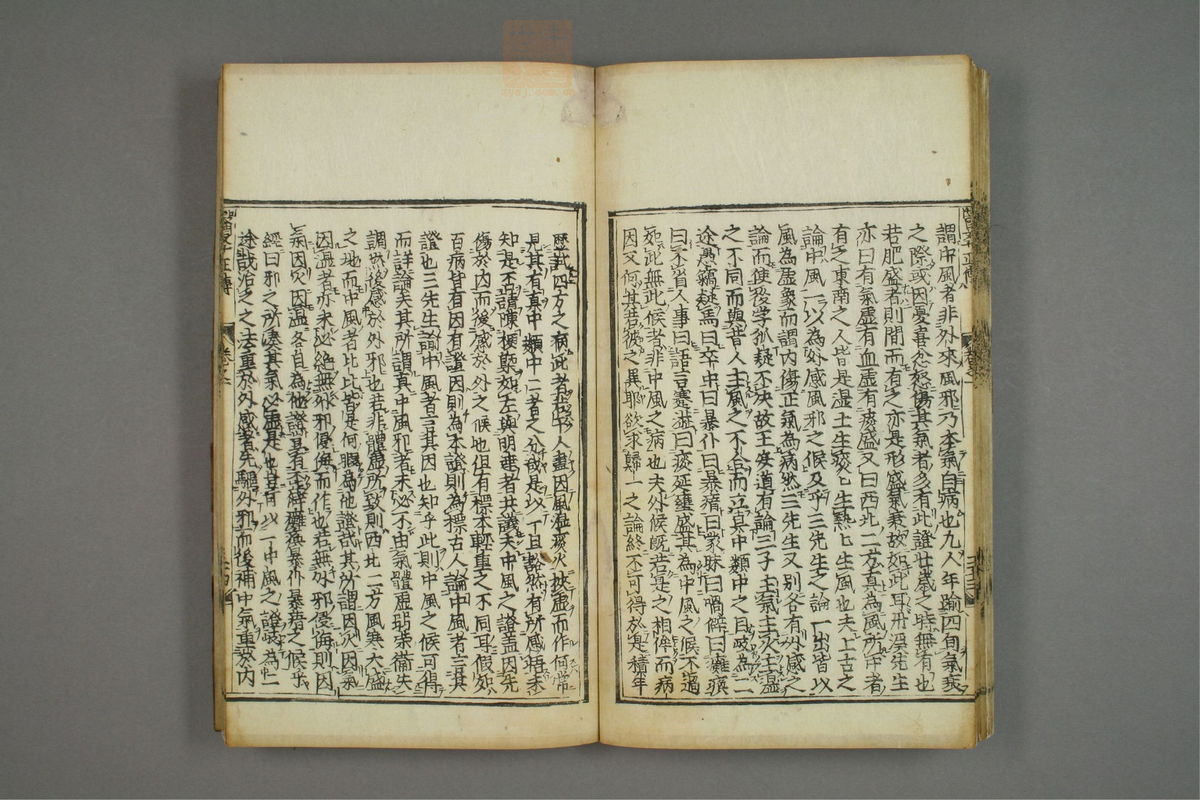 謂中風者非外來風邪乃本氣自病也九人年踰四旬氣衰
之際或因憂喜忿怒傷其氣者多有此證壯歲之時無有也
若肥盛者則間而有之亦是形盛氣衰故如此耳丹溪先生
亦曰有氣虛有血虛有痰盛又曰西北二方真為風所中者
有之東南之人皆是湿土生痰〻生熱〻生風也夫上古之
論中風一以為外感風邪之候及乎三先生之論一出皆以
風為虛象而謂内傷正氣為病然三先生又別各有外感之
論而使後学狐疑不决故王安道有論三子主氣主火主湿
之不同而與昔人主風之不合而立真中類中之目岐為二
途愚竊疑焉曰卒中曰暴仆曰暴瘖曰蒙昧曰喎僻曰癱瘓
曰不省人事曰語言蹇澁曰痰延壅盛其為中風之候不過
如此無此候者非中風之病也夫外候既若是之相侔而病
因又何其若彼之異耶欲求歸一之論終不可得於是積年
歴試四方之病此者若干人盡因風湿痰火挾虛而作何常
見其有真中類中二者之分哉是以一旦豁然有所感晤未
知是不謹陳梗槩如左與明達者共議夫中風之證盖因先
傷於内而後感於外之候也但有標本輕重之不同耳假如
百病皆有因有證因則為本證則為標古人論中風者言其
證也三先生論中風者言其因也知乎此則中風之候可得
而詳論夫其所謂真中風邪者未必不由氣體虛弱荣衛失
調然後感於外邪也若非體虛所致則西北二方風寒大盛
之地而中風者比比皆是何暇為他證哉其所謂因火因氣
因湿者亦未必絶無外邪侵侮而作也若無外邪侵侮則因
氣因火因湿各自為他證豈有歪僻癱瘓暴仆暴瘖之候乎
經曰邪之所湊其氣必虛是也豈可以一中風之證岐為二
途哉治之之法重於外感者先驅外邪而後補中氣重於内
醫學正傳
卷之一